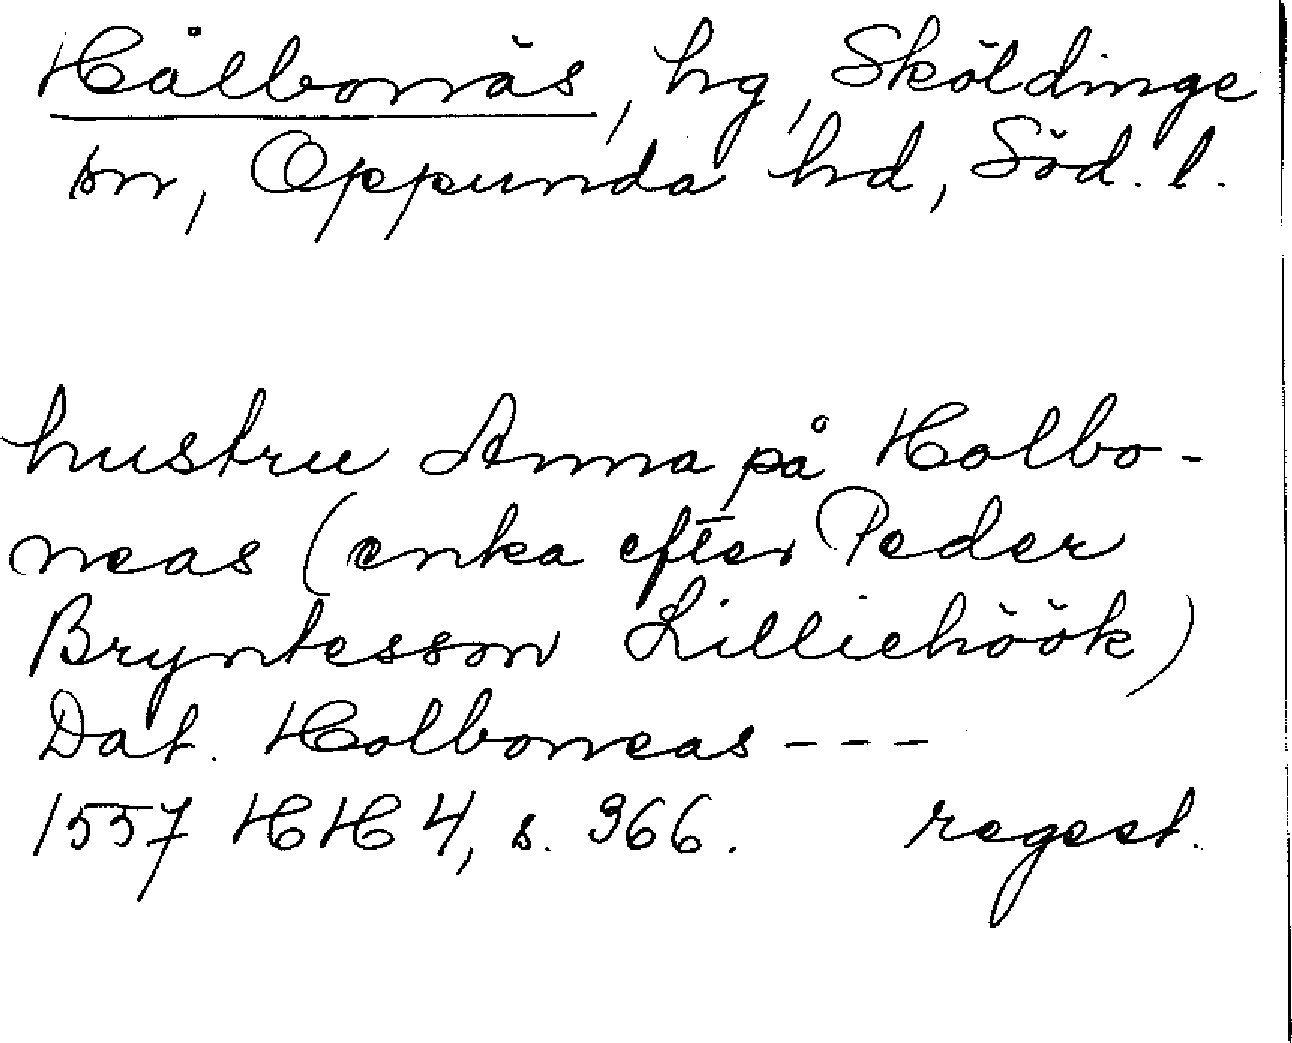 Hålbonäs, hg, Sköldinge
sn, Oppunda hd, Söd. l.
hustru Anna på Holbo-
neas (enka efter Peder
Bryntesson Lilliehöök)
Dat. Holboneas - - -
1557 HH 4, s. 366. regest.